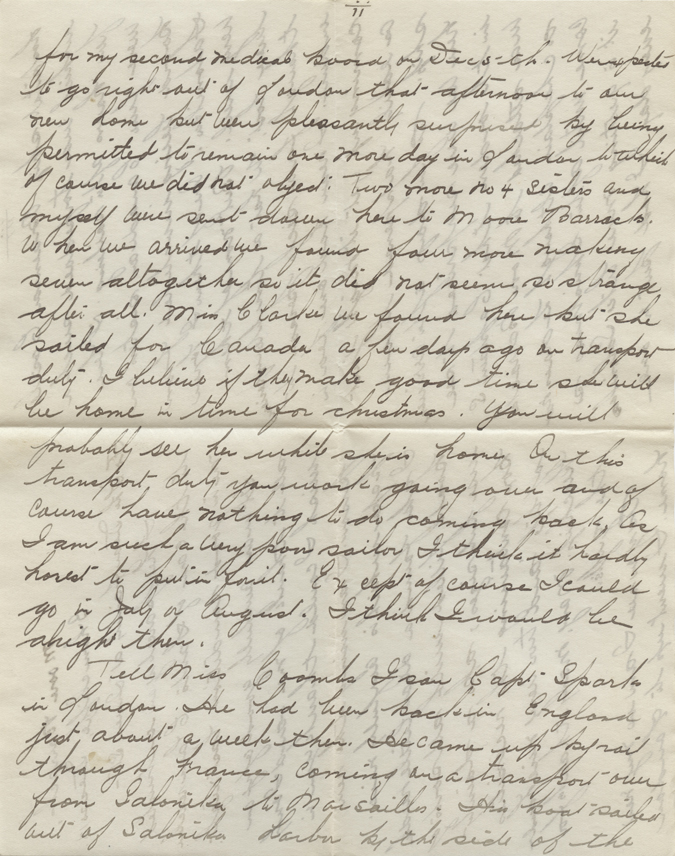 11
for my second medical board on Dec 5-th. We expected
to go right out of London that afternoon to our
new home but were pleasantly surprised by being
permitted to remain one more day in London to which
of course we did not object. Two more no 4 Sisters and
myself were sent down here to Moore Barracks.
When we arrived we found four more making
seven altogether so it did not seem so strange
after all. Miss Clarke we found here but she
sailed for Canada a few days ago on transport
duty. I believe if they make good time she will
be home in time for christmas. You will
probably see her while she is home. On this
transport duty you work going over and of
course have nothing to do coming back. As
I am such a very poor sailor I think it hardly
honest to put in for it. Except of course I could
go in July or August. I think I would be
alright then.
Tell Miss Coombs I saw Capt Sparks
in London. He had been back in England
just about a week then. He came up by rail
through France, coming on a transport over
from Salonika to Marsailles. His boat sailed
out of Salonika Harbor by the side of the